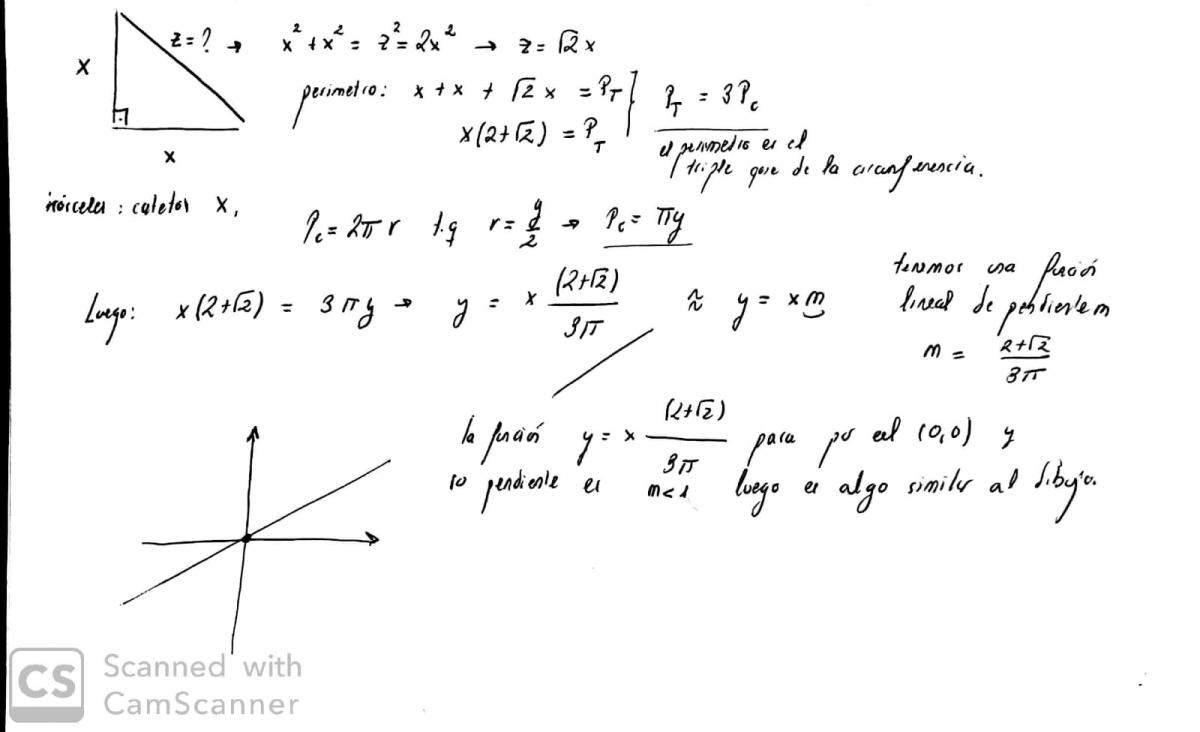 x
z = ? → x² + x² = z² = 2x² → z = √2 x
perimetro: x + x + √2 x = P_T } P_T = 3P_c
x(2+√2) = P_T
el perimetro es el
triple que de la circunferencia.
x
isósceles : catetos x,
P_c = 2π r t.q r = y/2 → P_c = πy
Luego: x(2+√2) = 3πy → y = x (2+√2)/3π ≈ y = x m
tenemos una función
lineal de pendiente m
m = 2+√2/3π
la función y = x (2+√2)/3π pasa por el (0,0) y
pendiente es m<1 luego es algo similar al dibujo.
CS Scanned with
CamScanner